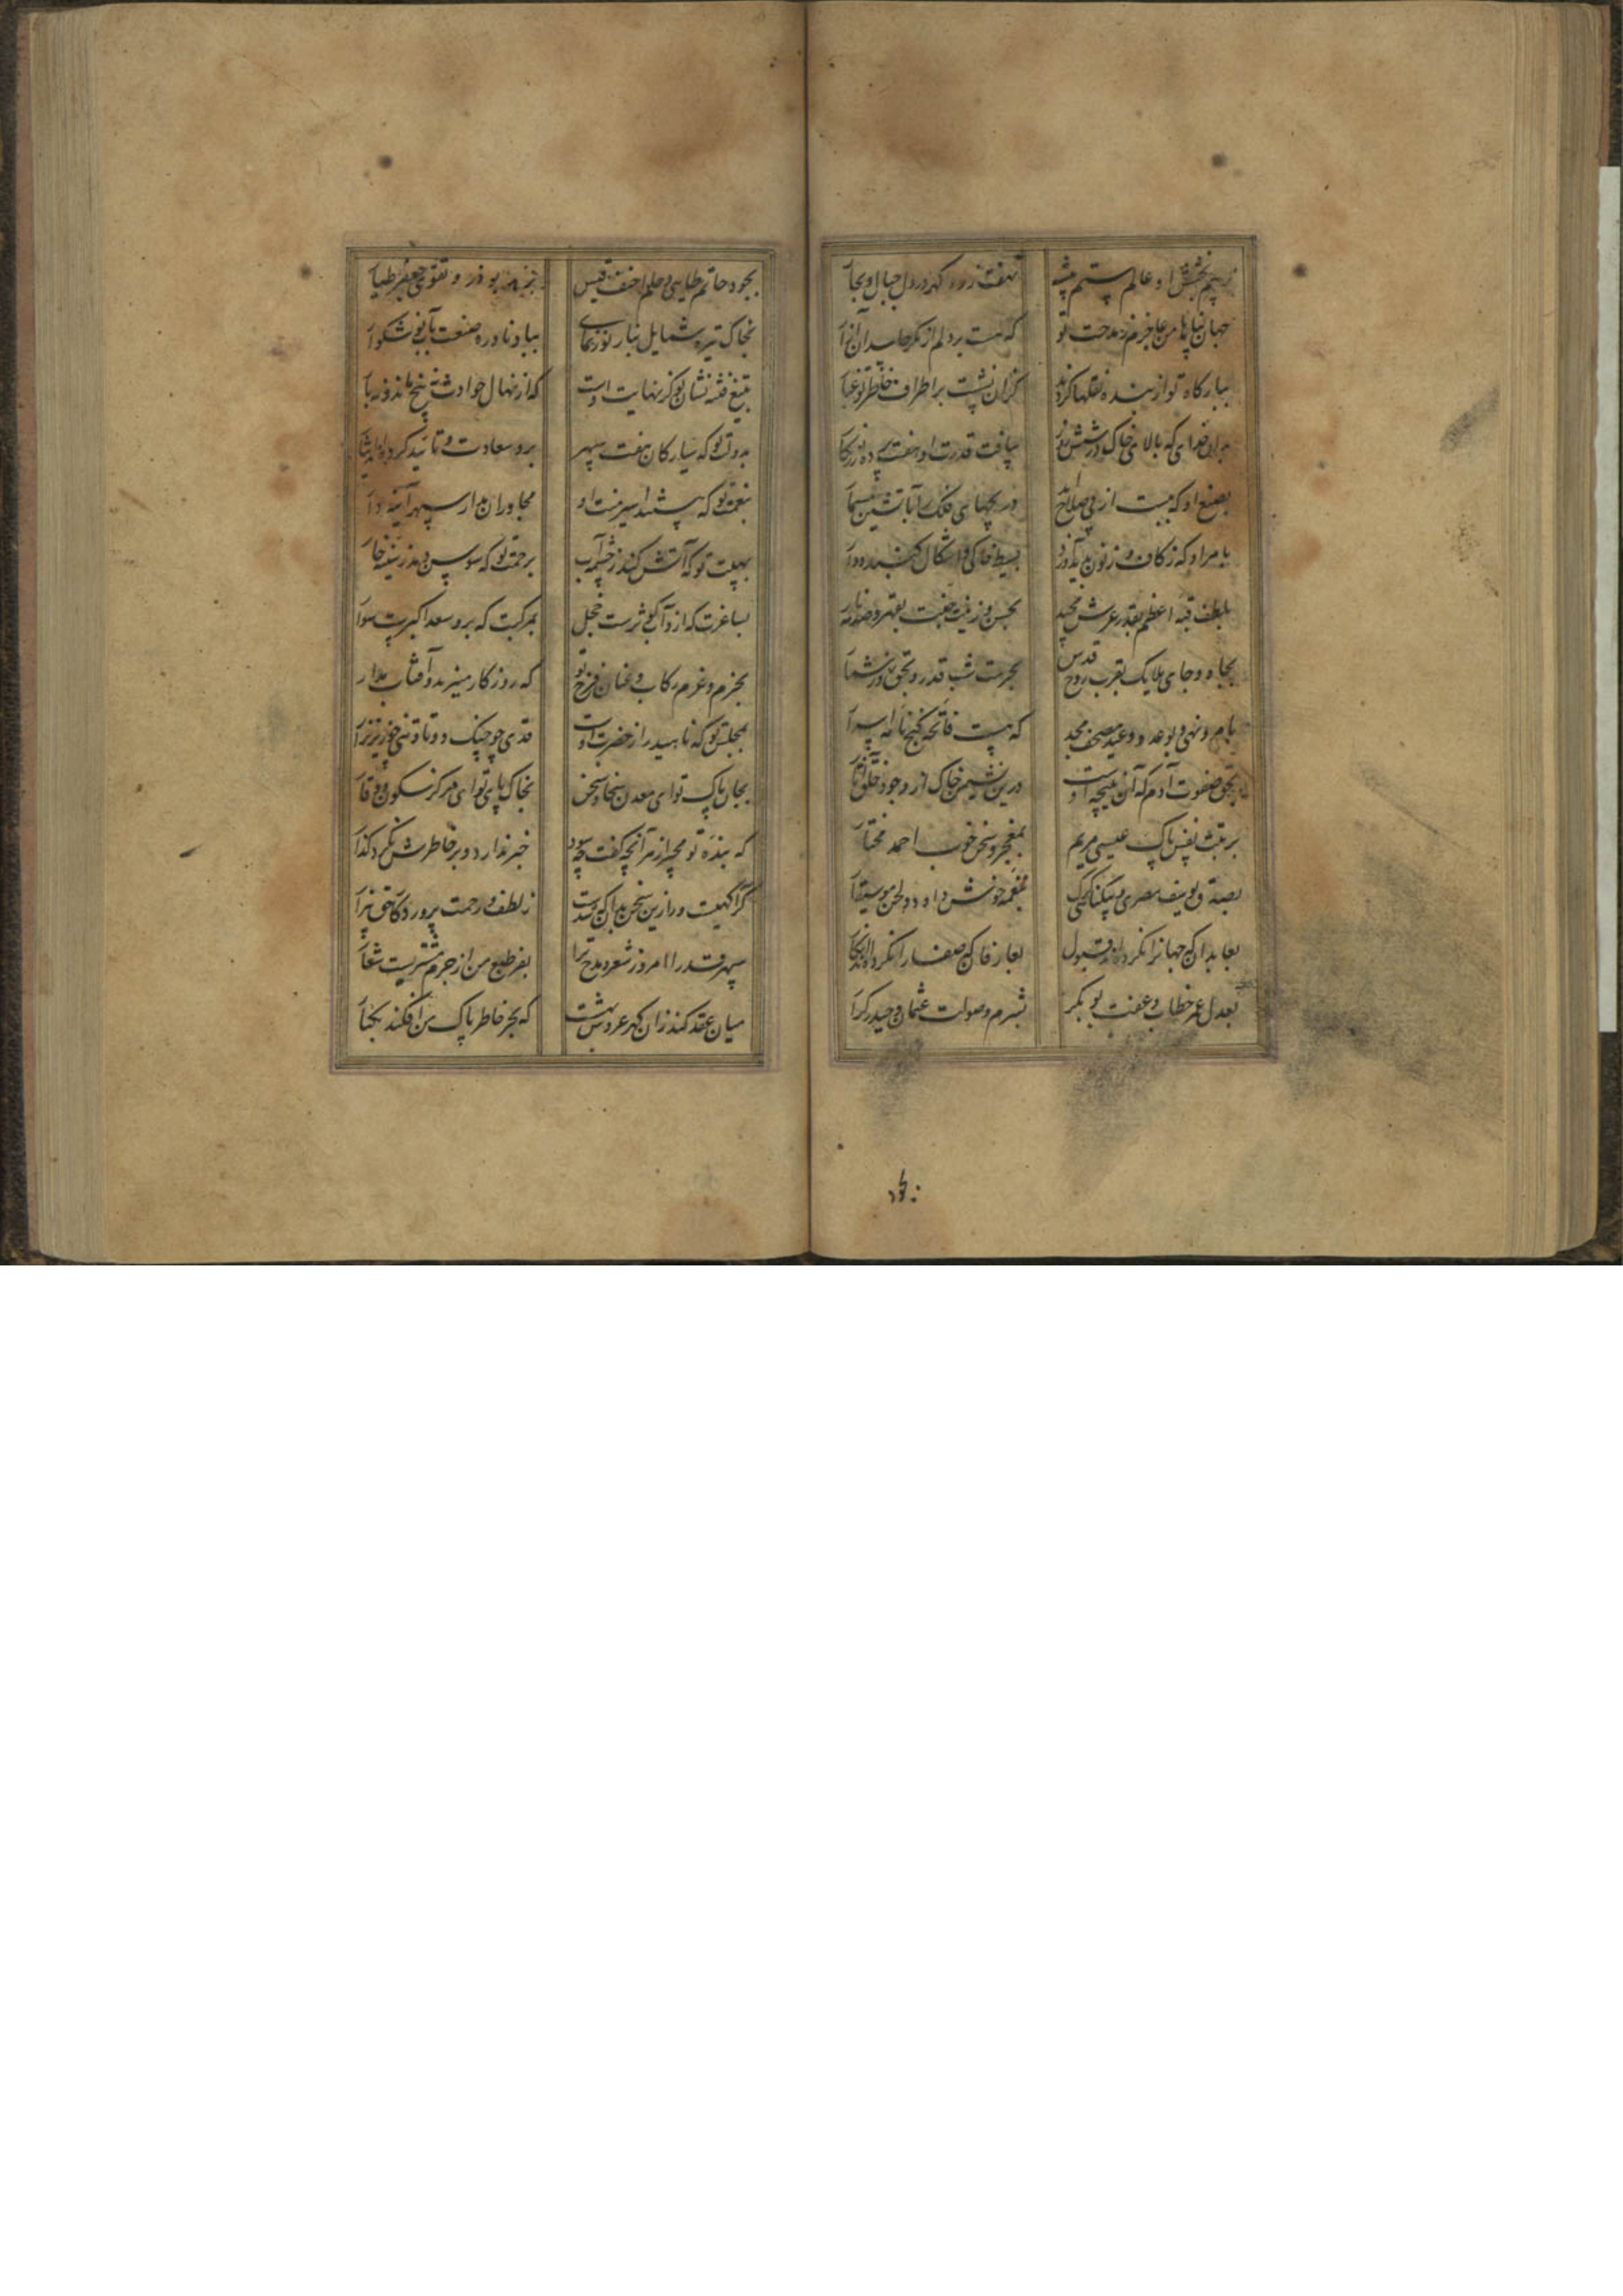 ز بیم بخشش او عالم ستم پیشه نهفت زر و گهر در دل جبال و بحار
جهان پناها من عاجزم ز مدحت تو که هست بر دلم از مکر حاسدان آزار
ببارگاه تو از بنده نقلها کردند کزان نشست بر اطراف خاطر تو غبار
بدان خدای که بالای خاک در شش روز ببافت قدرت او هفت پرده زرکار
بصنع او که ببست از پی صلاح دریچهای فلک را بآتشین مسمار
بامر او که ز کاف و ز نون پدید آورد بسیط خاکی و اشکال گنبد دوار
بلطف قبه اعظم بقدر عرش مجید بحسن و زینت جنت بقهر و صدمه نار
بجاه و جای ملایک بقرب روح قدس بحرمت شب قدر و بحق روز شمار
بامر و نهی و بوعد و وعید مصحف مجد که هست فاتحه گنج نامه اسرار
بحق صفوت آدم که آن نتیجه اوست درین نشیمن خاک از وجود خلق آثار
برتبت نفس پاک عیسی مریم بمعجز و سخن خوب احمد مختار
بصدق یوسف مصری و نیکنامی بنغمه خوش داود و لحن موسیقار
بعابدان که جهان را نکرده‌اند قبول بعارفان که صفا را نکرده‌اند انکار
بعدل عمر خطاب و عفت بوبکر بشرم و صولت عثمان و حیدر کرار
بجود حاتم طایی و حلم احنف قیس بوذر و تقوی جعفر طیار
بخاک تیره شمایل بنار نورنمای بباد نادره صنعت بآب نوشگوار
بتیغ فتنه نشان تو کز نهایت اوست که از نهال حوادث نه بیخ ماند و نه بار
بدولت تو که سیارگان هفت سپهر برو سعادت و تایید کرده‌اند نثار
بنعمت تو که هستند اسیر منت او مجاوران مدار سپهر آینه دار
بهیبت تو که آتش کند ز چشمه آب برحمت تو که سوسن دمد ز سینه خار
بساغرت که ازو آب کوثرست خجل بمرکبت که برو سعد اکبرست سوار
بحزم و عزم رکاب و عنان فرخ تو که روزگار مسیرند و آفتاب مدار
بمجلس تو که ناهید را ز حضرت اوست قدی چو چنگ دوتا و تنی چو زیر نزار
بجان پاک تو ای معدن سخا و سخن بخاک پای تو ای مرکز سکون و وقار
که بنده تو مجیر از هر آنچه گفت حسود خبر ندارد و بر خاطرش نکرد گذار
گر آگهیست ورا زین سخن بدان که شدست ز لطف و رحمت پروردگار حق بیزار
سپهر قدرا امروز شعر و مدح ترا بفر طبع من از جرم مشتریست شعار
میان عقد کند زان گهر عروس بهشت که بحر خاطر پاک من افکند بکنار